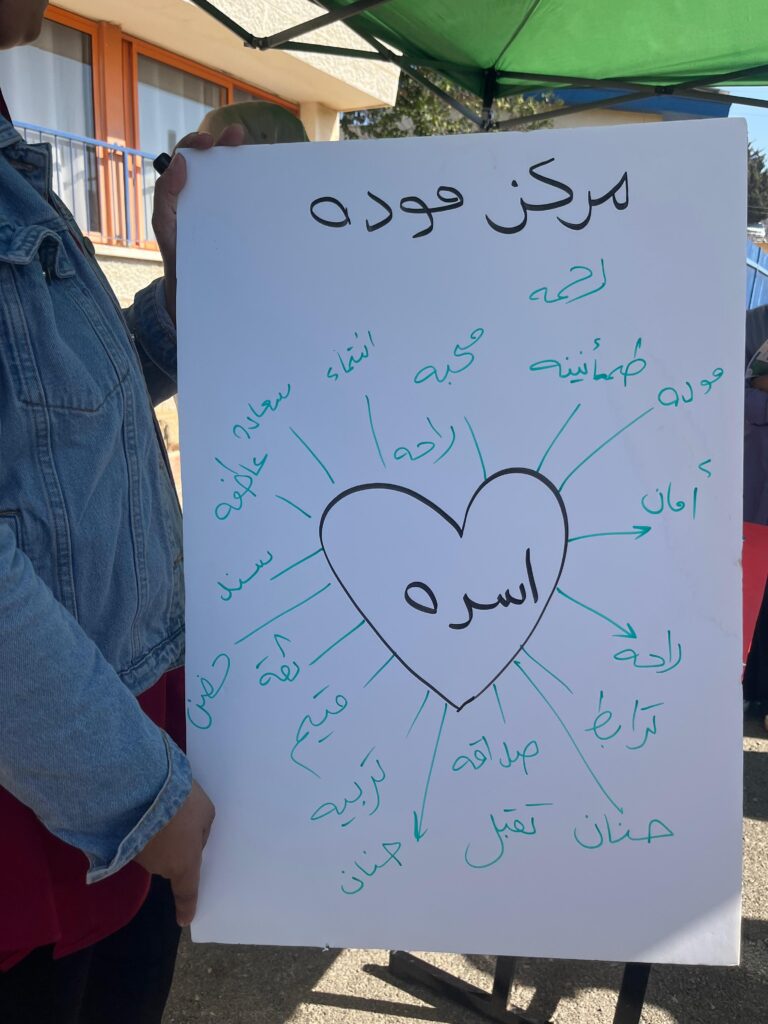 مركز موده
رحمه
طمأنينه
محبه
انتماء
سعاده
موده
راحه
عاطفه
أمان
سند
اسره
راحه
ثقة
حضن
قيم
ترابط
صداقه
تربيه
حنان
تقبل
حنان